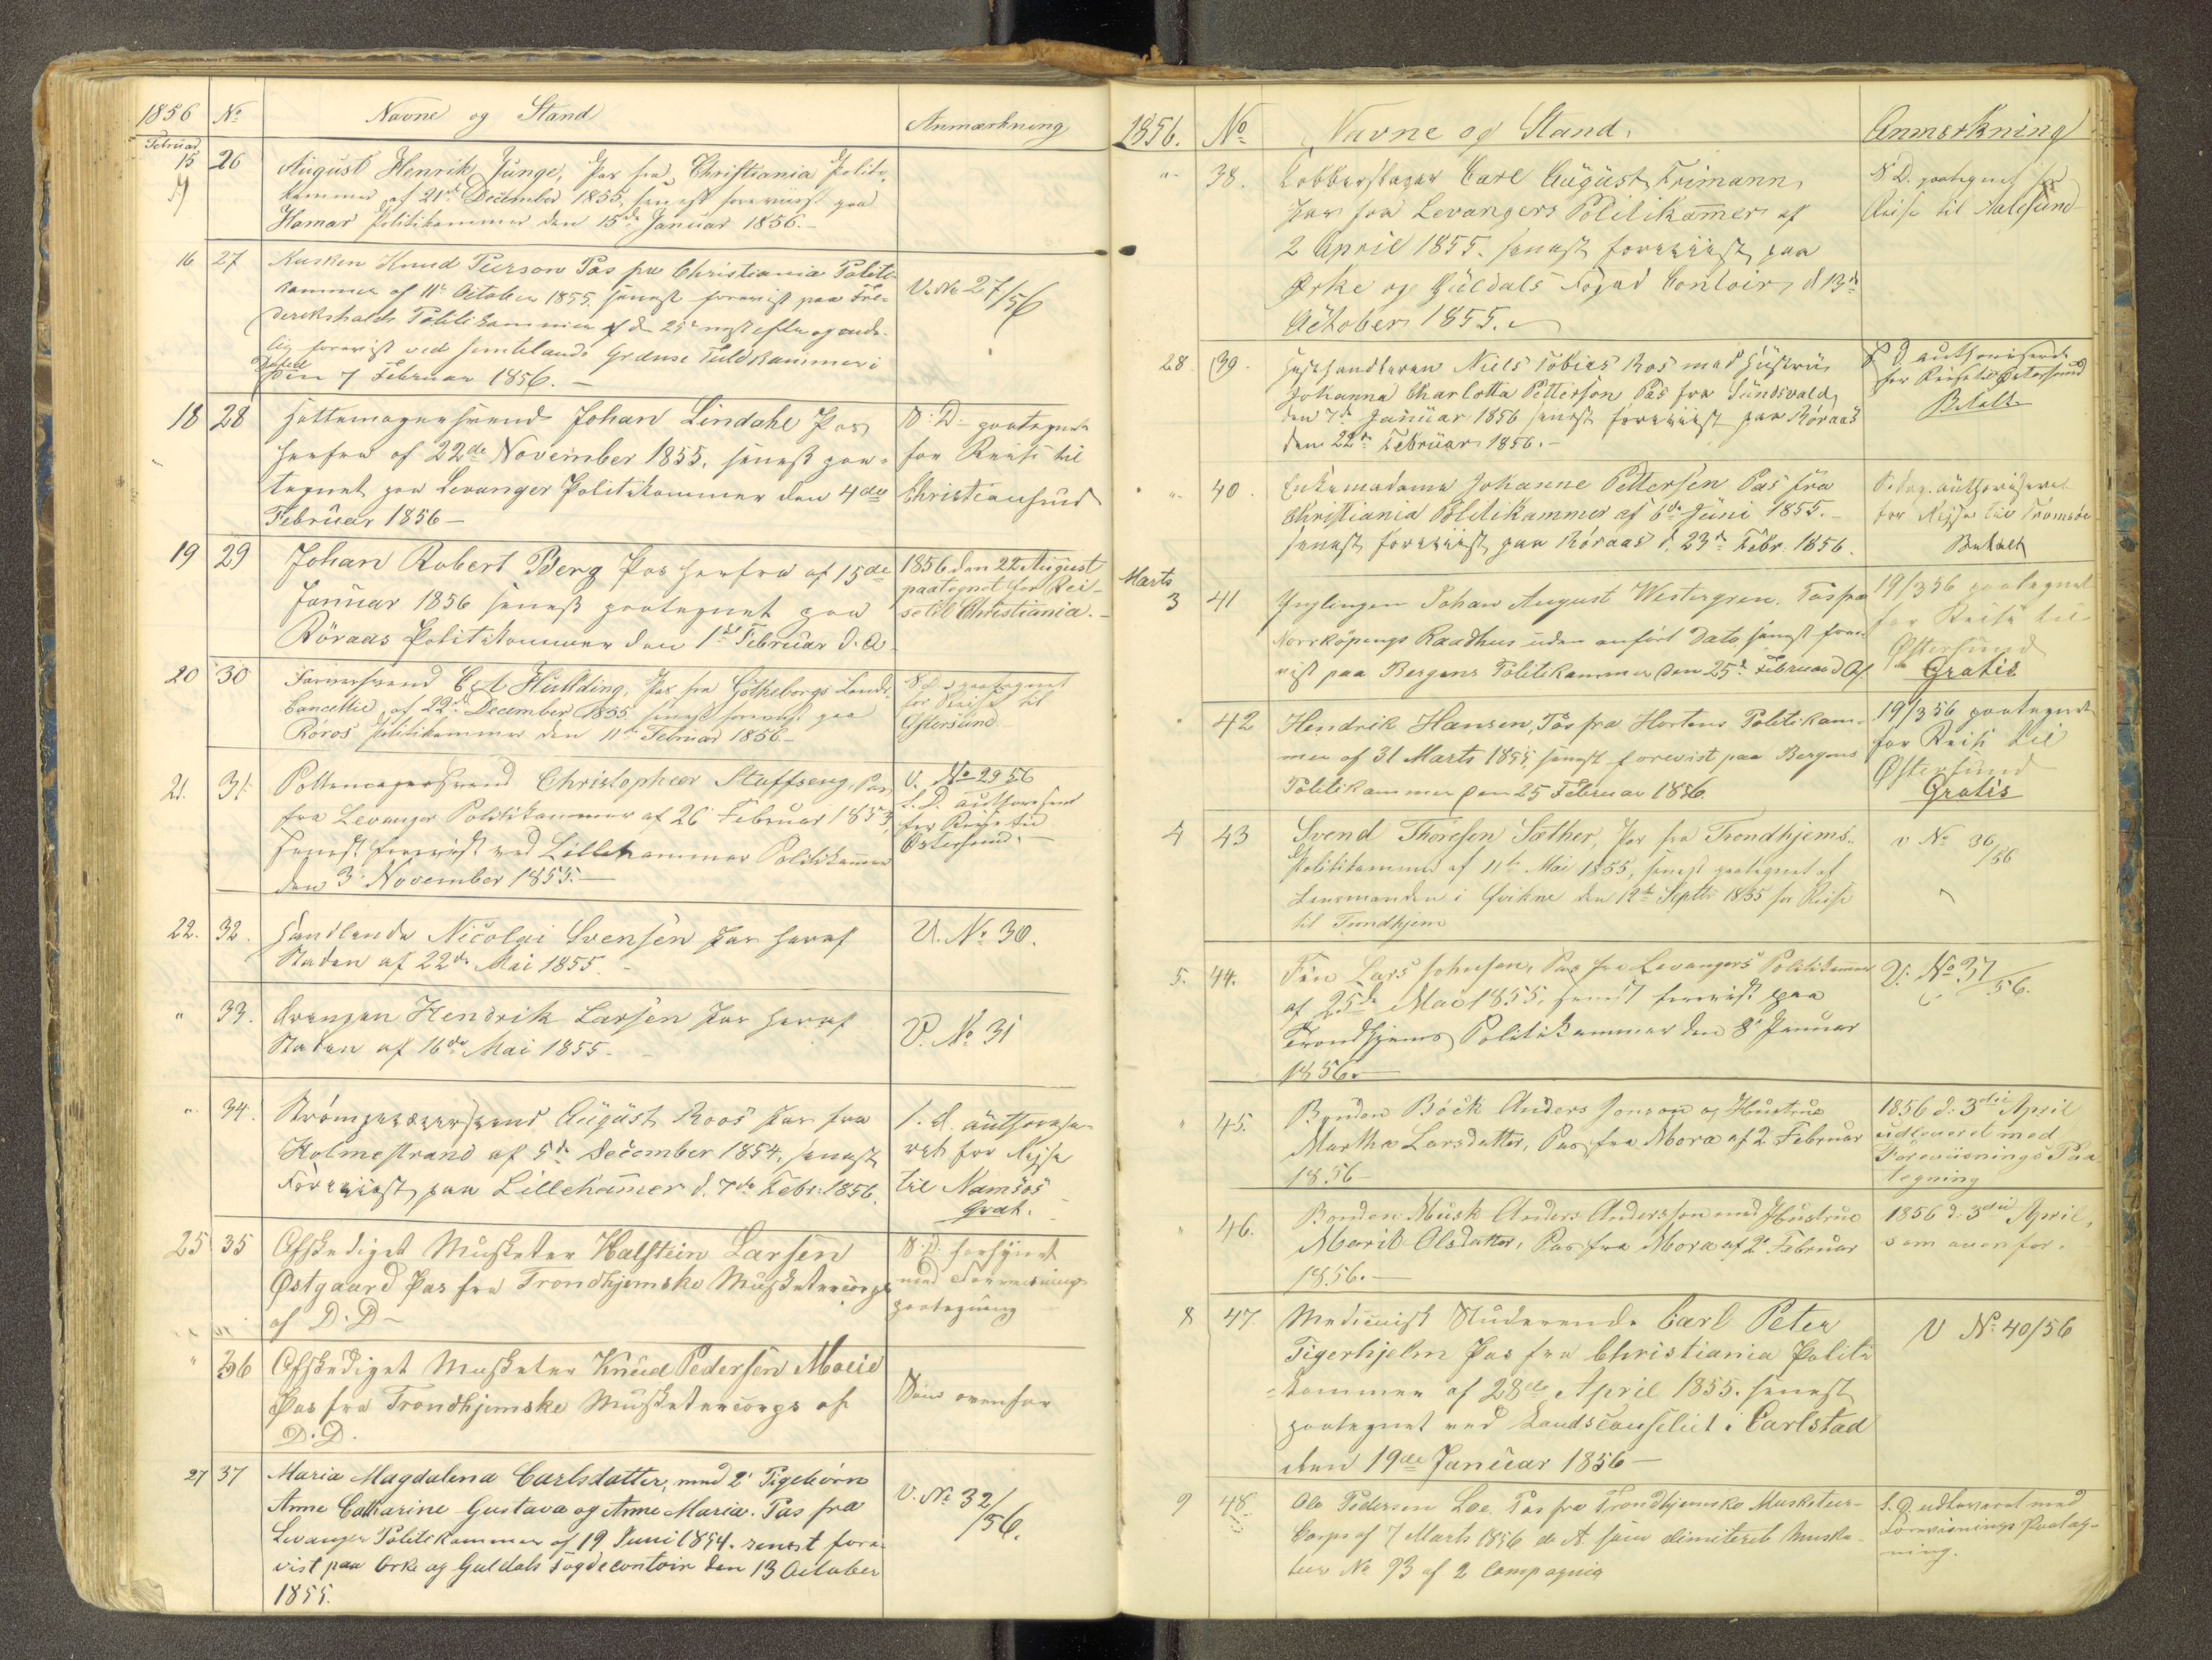 1856 No Navne og Stand Anmærkning
Februar
15 26 August Henrik Junge, Pas fra Christiania Politi-
kammer af 21de December 1855, senest foreviist paa
Hamar Politikammer den 15de Januar 1856.-
16 27 Kusken Knud Person Pas fra Christiania Politi-
kammer af 11te October 1855, senest forevist paa Fre-
derikshalds Politikammer
forevist ved Grændse Toldkammer i
den 7 Februar 1856.-
V. No 27/56
18 28 Hattemagersvend Johan Lindahl Pas
herfra af 22de November 1855, senest paa-
tegnet paa Levanger Politikammer den 4de
Februar 1856-
S. D. paategnet
for Reise til
Christiansund
19 29 Johan Robert Berg Pas herfra af 15de
Januar 1856 senest paategnet paa
Röraas Politikammer den 1ste Februar d. A.
1856 den 22 August
paategnet for Rei-
se til Christiania.-
20 30 Farversvend Pas fra Götheborgs Lands
Cancellie, af 22de December 1855. senest foreviist paa
Röros Politikammer den 11te Februar 1856-
S. D. paategnet
for Reise til
Østersund
21. 31. Pottemagersvend Christopher Staffseng, Pas
fra Levanger Politikammer af 26 Februar 1853
senest foreviist ved Lillehammer Politikammer
den 3 November 1855.-
V. No 29 56
S. D. authoriseret
for Reise til
Østersund.-
22. 32. Handlende Nicolai Svensen Pas heraf
Staden af 22de Mai 1855.-
V. No 30.
" 33. Drengen Hendrik Larsen Pas heraf
Staden af 16de Mai 1855.-
V. No 31
" 34. August Roos Pas fra
Holmestrand af 5te December 1854, senest
Foreviist paa Lillehammer d. 7de Febr. 1856.
s. d. authorise-
ret for Rejse
til Namsos
Grat.
25 35 Afskediget Musketer Halstein Larsen
Østgaard Pas fra Trondhjemske Musketercorps
af D. D-
S. D. forsynet
med Forevisnings
paategning
" 36 Afskediget Musketer Knud Pedersen Moeie
Pas fra Trondhjemske Musketercorps af
D. D.
Som ovenfor
27 37 Maria Magdalena Carlsdatter, med 2 Pigebörn
Anne Catharine Gustava og Anne Maria. Pas fra
Levanger Politikammer af 19 Juni 1854. senest fore-
vist paa Orke og Guldals Fogdecontoir den 13 October
1855.
V. No 32/56.
1856. No Navne og Stand. Anmerkning
" 38. Kobberslager Carl August Frimann,
Pas fra Levangers Politikammer af
2 April 1855. senest foreviist paa
Ørke og Guldals Foged Contoir d 13de
October 1855.
S. D. paategnet for
Reise til Aalesund
28. 39. Hesthandleren Niels Tobias Ros med Hustru
Johanna Charlotta Petterson Pas fra Sundsvald,
den 7de Januar 1856 senest foreviist paa Röraas
den 22de Februar 1856.-
S. D. authoriseret
for Reise til Østersund
Betalt
" 40. Enkemadame Johanne Pettersen Pas fra
Christiania Politikammer af 6te Juni 1855.-
senest foreviist paa Röraas d. 23de Febr. 1856.
S. dag. authoriseret
for Rejse til Tromsöe
Betalt
Marts
3 41 Ynglingen Johan August Westergren. Pas fra
Norrköpings Raadhus uden anfört Dato, senest fore-
vist paa Bergens Politikammer den 25de Februar d. A.
19/3 56 paategnet
for Reise til
Østersund
Gratis
" 42 Hendrik Hansen, Pas fra Hortens Politikam-
mer af 31 Marts 1855, senest forevist paa Bergens
Politikammer den 25 Februar 1856.
19/3 56 paategnet
for Reise til
Østersund
Gratis
4 43 Svend Thoresen Sæther, Pas fra Trondhjems
Politikammer af 11te Mai 1855, senest paategnet af
Lensmanden i Qvikne den 12te Septbr 1855 for Reise
til Trondhjem
v No 36/56
5. 44. Fin Lars Johnsen, Pas fra Levangers Politikammer
af 25de Mai 1855, senest foreviist paa
Trondhjems Politikammer den 8de Januar
1856.-
V. No 37/56.
" 45. Bonden Böck Anders Jonson og Hustrue
Martha Larsdatter, Pas fra Mora af 2 Februar
1856-
1856 d. 3die April
udleveret med
Foreviisnings Paa-
tegning
" 46. Bonden Musk Anders Andersson med Hustrue
Marit Olsdatter, Pas fra Mora af 2 Februar
1856.-
1856 d. 3die April,
som ovenfor.
8 47 Medicinsk Studerende Carl Peter
Tigerhjelm Pas fra Christiania Politi
kammer af 28de April 1855. senest
paategnet ved Landscanseliet i Carlstad
den 19de Januar 1856-
V No 40/56
9 48 Ole Pedersen Loe. Pas fra Trondhjemske Musketeer-
Corps af 7 Marts 1856 d. A. som dimiteret Muske-
teer No 93 af 2 Compagnie
S. D. udleveret med
Forevisnings Paateg-
ning.